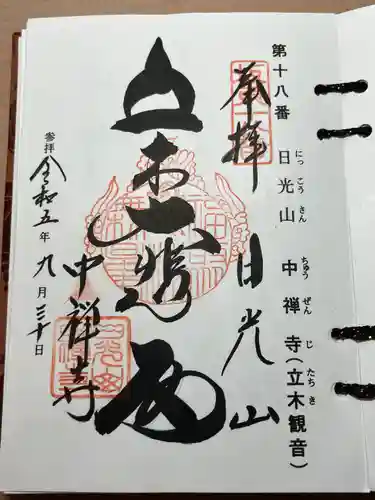 第十八番 日光山 中禅寺(立木観音)
にっ こう さん ちゅう ぜん じ たち き
奉拝 日光山
立木大悲殿
中禅寺
参拝 令和五年九月三十日